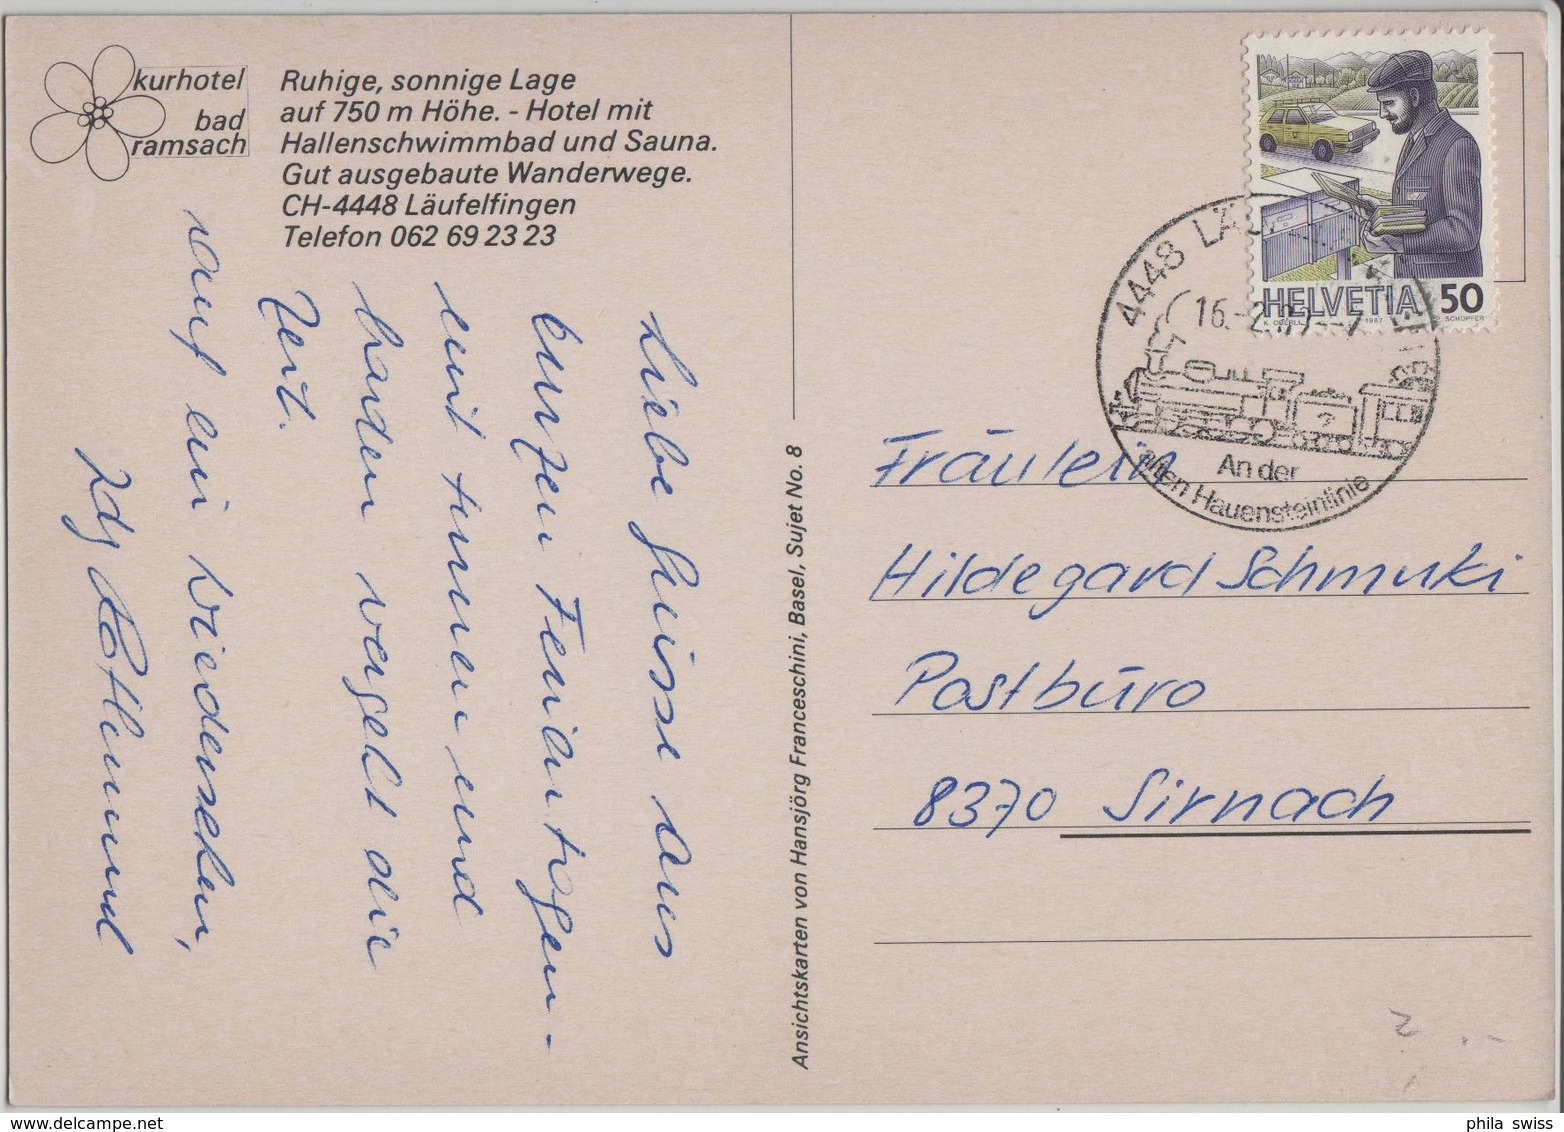 kurhotel
bad
ramsach
Ruhige, sonnige Lage
auf 750 m Höhe. - Hotel mit
Hallenschwimmbad und Sauna.
Gut ausgebaute Wanderwege.
CH-4448 Läufelfingen
Telefon 062 69 23 23
Liebe Grüsse aus
kurzen Ferientagen -
mit turnen und
baden vergeht die
Zeit.
auf ein wiedersehen,
Idy
Ansichtskarten von Hansjörg Franceschini, Basel, Sujet No. 8
HELVETIA 50
K. OBERLI 1987 SCHÖPFER
4448
16.
An der
alten Hauensteinlinie
Fräulein
Hildegard Schmuki
Postbüro
8370 Sirnach
phila swiss